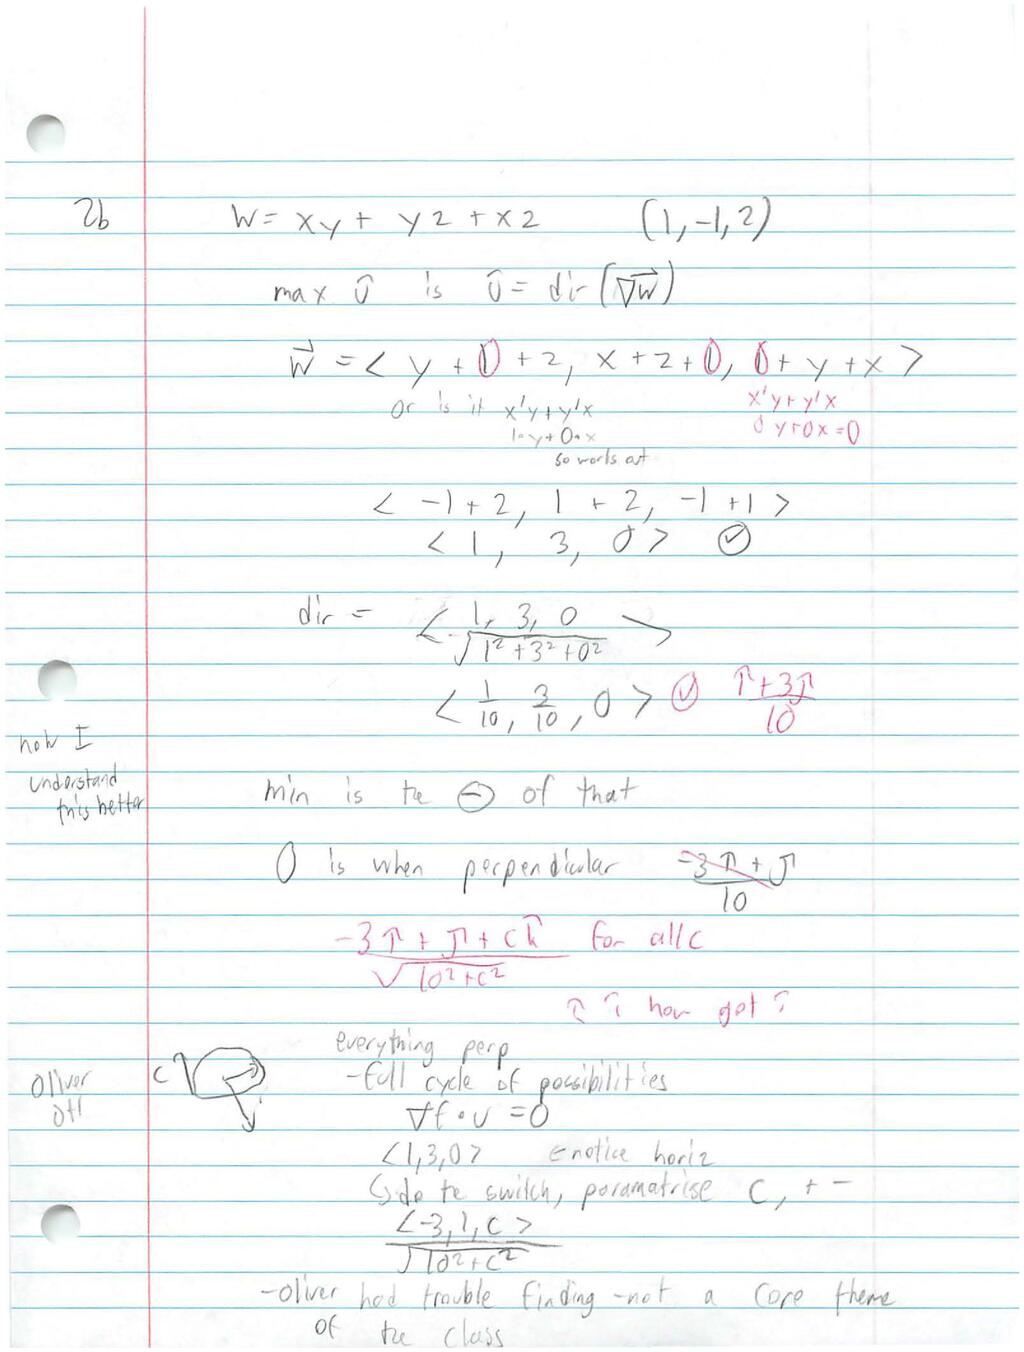 2b W = xy + yz + xz (1, -1, 2)
max û is û = dir (∇w)
w⃗ = < y + 0 + z, x + z + 0, 0 + y + x >
or is it x'y + y'x x'y + y'x
1·y + 0·x 0y + 0x = 0
so works out
< -1 + 2, 1 + 2, -1 + 1 >
< 1, 3, 0 > ✓
dir = < 1, 3, 0 / √1² + 3² + 0² >
< 1/10, 3/10, 0 > ✓ î + 3ĵ / 10
now I
understand
this better
min is the ⊖ of that
0 is when perpendicular -3î + ĵ / 10
-3î + ĵ + ck̂ / √10² + c² for all c
↑ ? how get ?
everything perp
Oliver c - full cycle of possibilities
OH
∇f · u = 0
<1, 3, 0> ← notice horiz
↳ do the switch, paramatrise c, + -
<-3, 1, c> / √10² + c²
- Oliver had trouble finding - not a core theme
of the class